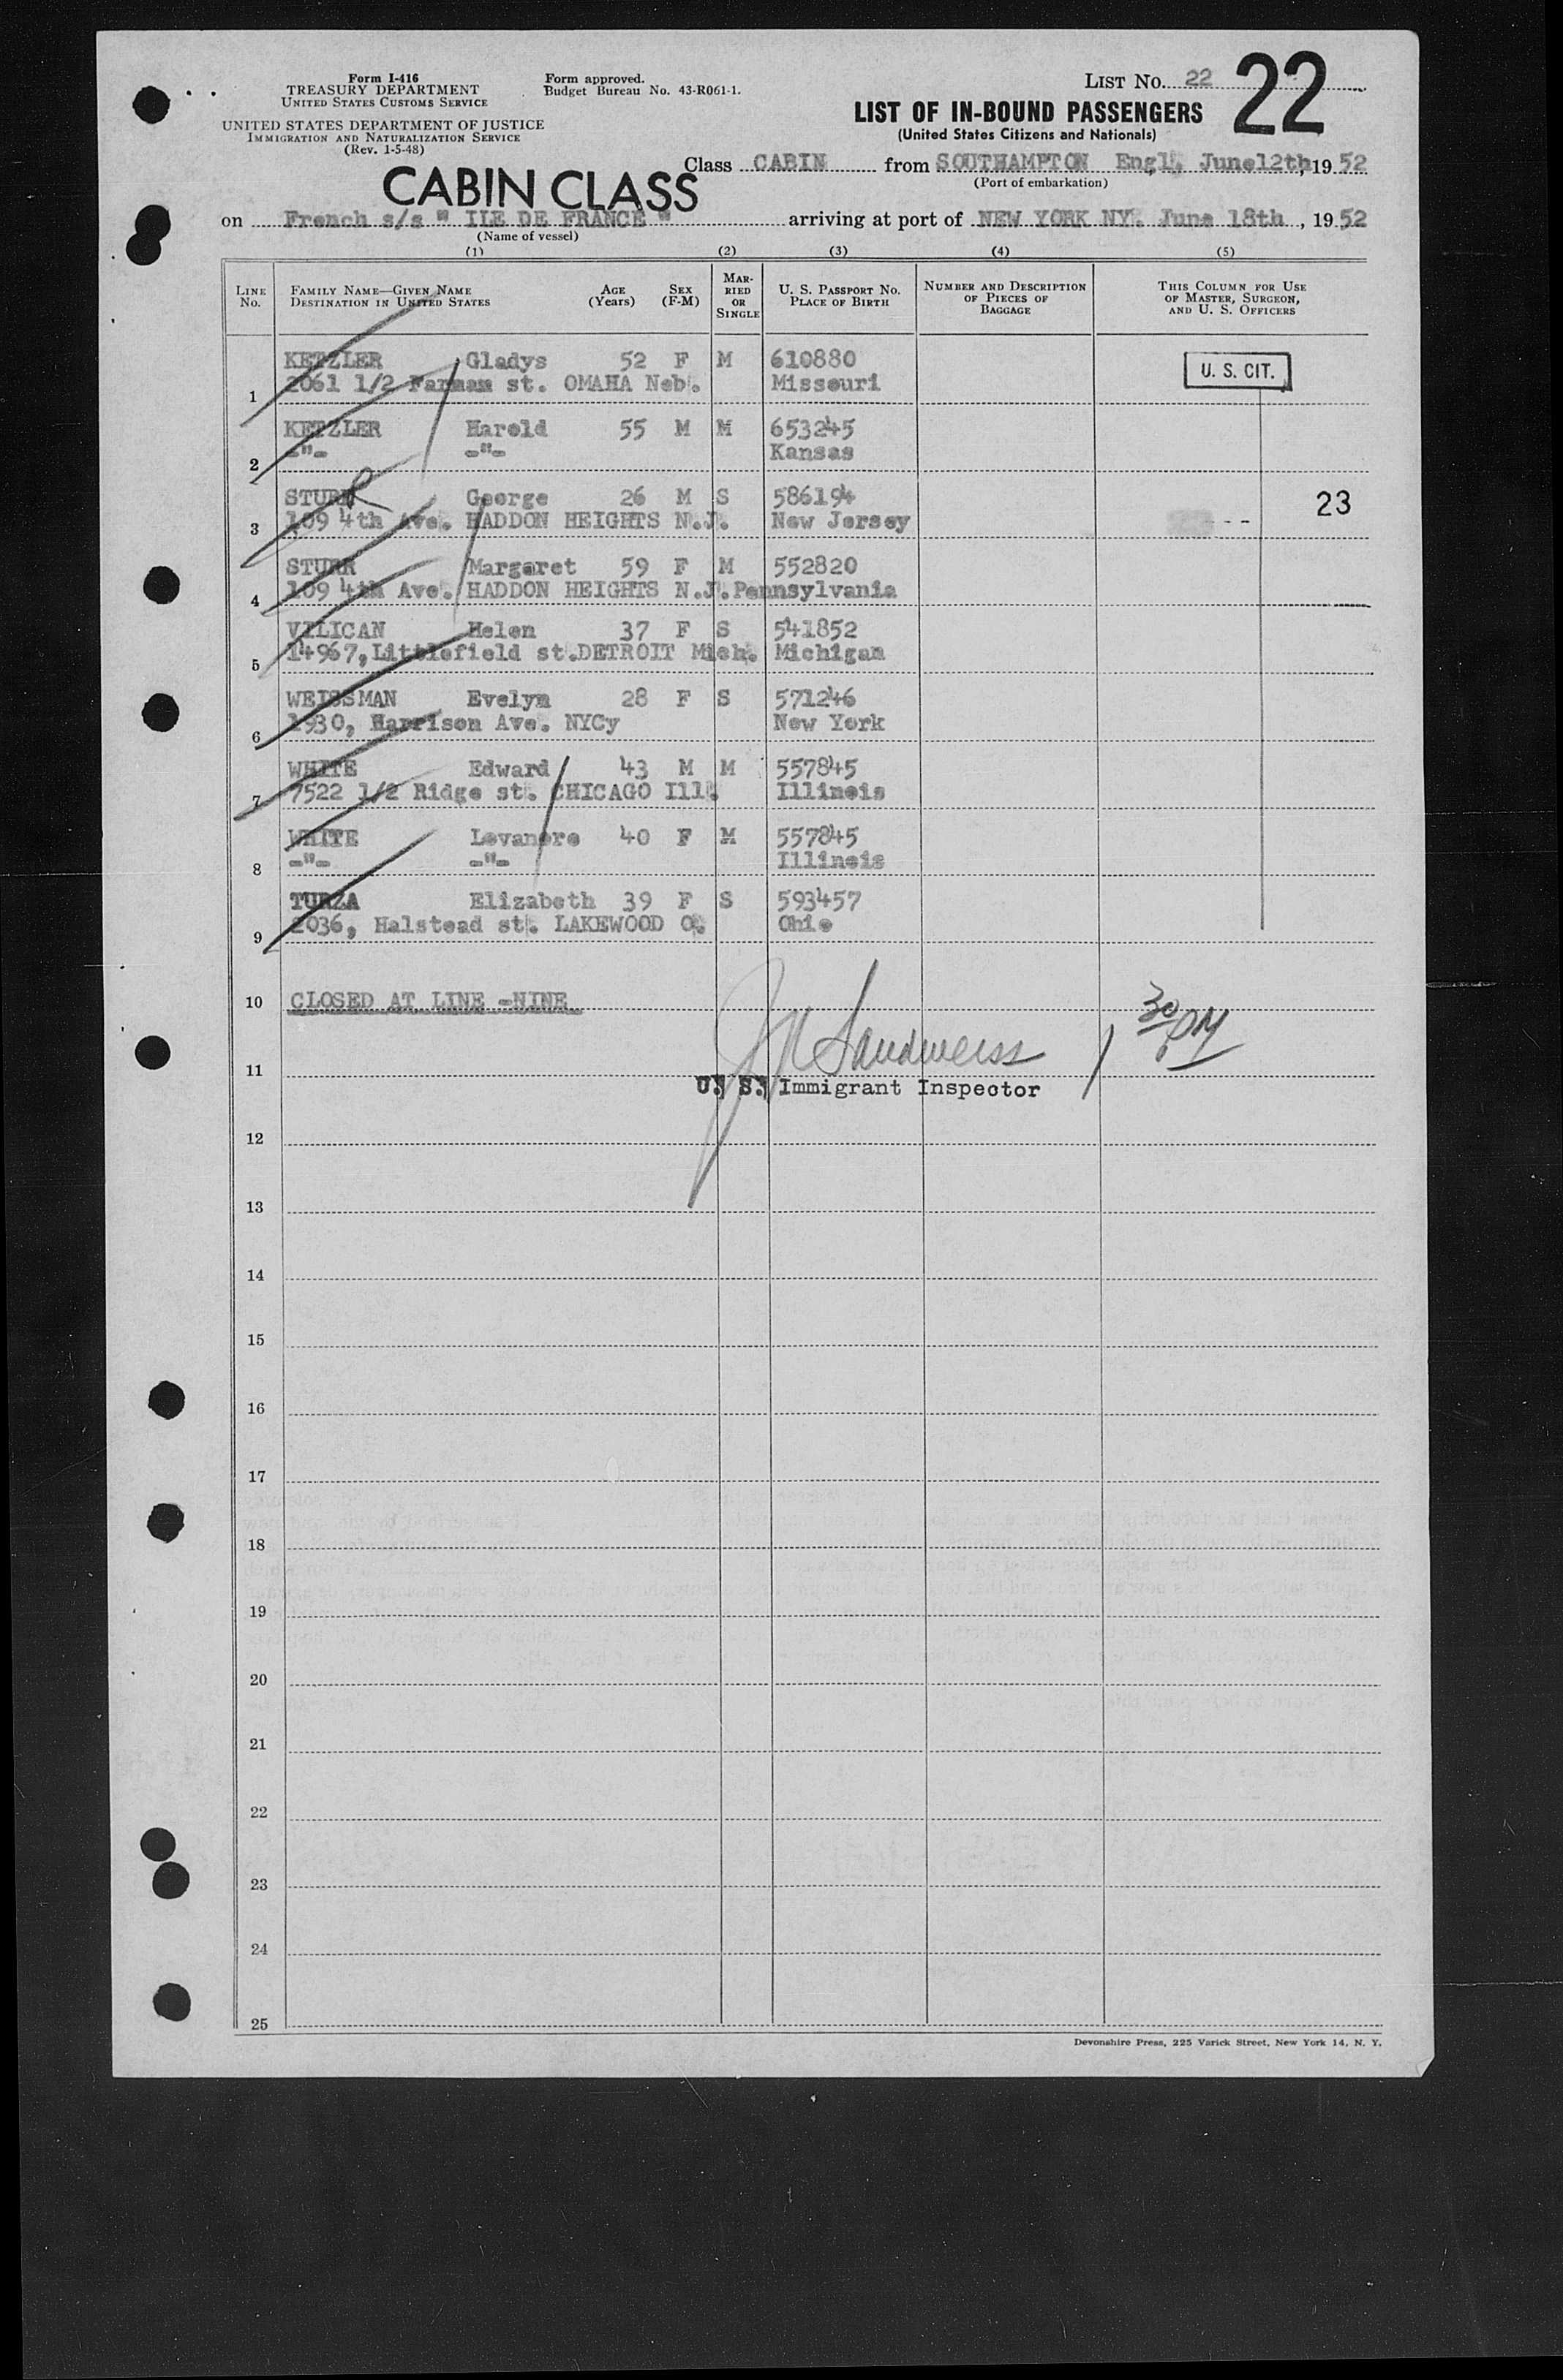 Form I-416
TREASURY DEPARTMENT
UNITED STATES CUSTOMS SERVICE
UNITED STATES DEPARTMENT OF JUSTICE
IMMIGRATION AND NATURALIZATION SERVICE
(Rev. 1-5-48)
Form approved.
Budget Bureau No. 43-R061-1.
LIST NO. 22 22
LIST OF IN-BOUND PASSENGERS
(United States Citizens and Nationals)
CABIN CLASS
Class CABIN from SOUTHAMPTON Engl, June12th, 19 52
(Port of embarkation)
on French s/s " ILE DE FRANCE " arriving at port of NEW YORK NY. June 18th, 19 52
(Name of vessel)
(1) (2) (3) (4) (5)
LINE No. FAMILY NAME—GIVEN NAME DESTINATION IN UNITED STATES AGE (Years) SEX (F-M) MARRIED OR SINGLE U. S. PASSPORT NO. PLACE OF BIRTH NUMBER AND DESCRIPTION OF PIECES OF BAGGAGE THIS COLUMN FOR USE OF MASTER, SURGEON, AND U. S. OFFICERS
KETZLER Gladys 52 F M 610880 U. S. CIT.
1 2061 1/2 Farnam st. OMAHA Neb. Missouri
KETZLER Harold 55 M M 653245
2 -"- -"- Kansas
STURR George 26 M S 586194 23
3 109 4th Ave. HADDON HEIGHTS N.J. New Jersey --
STURR Margaret 59 F M 552820
4 109 4th Ave. HADDON HEIGHTS N.J. Pennsylvania
VILICAN Helen 37 F S 541852
5 14967, Littlefield st. DETROIT Mich. Michigan
WEISSMAN Evelyn 28 F S 571246
6 1930, Harrison Ave. NYCy New York
WHITE Edward 43 M M 557845
7 7522 1/2 Ridge st. CHICAGO Ill. Illinois
WHITE Levanore 40 F M 557845
8 -"- -"- Illinois
TURZA Elizabeth 39 F S 593457
9 2036, Halstead st. LAKEWOOD O. Ohio
10 CLOSED AT LINE -NINE
Sandweiss 1 30 PM
11 U. S. Immigrant Inspector
12
13
14
15
16
17
18
19
20
21
22
23
24
25
Devonshire Press, 225 Varick Street, New York 14, N. Y.